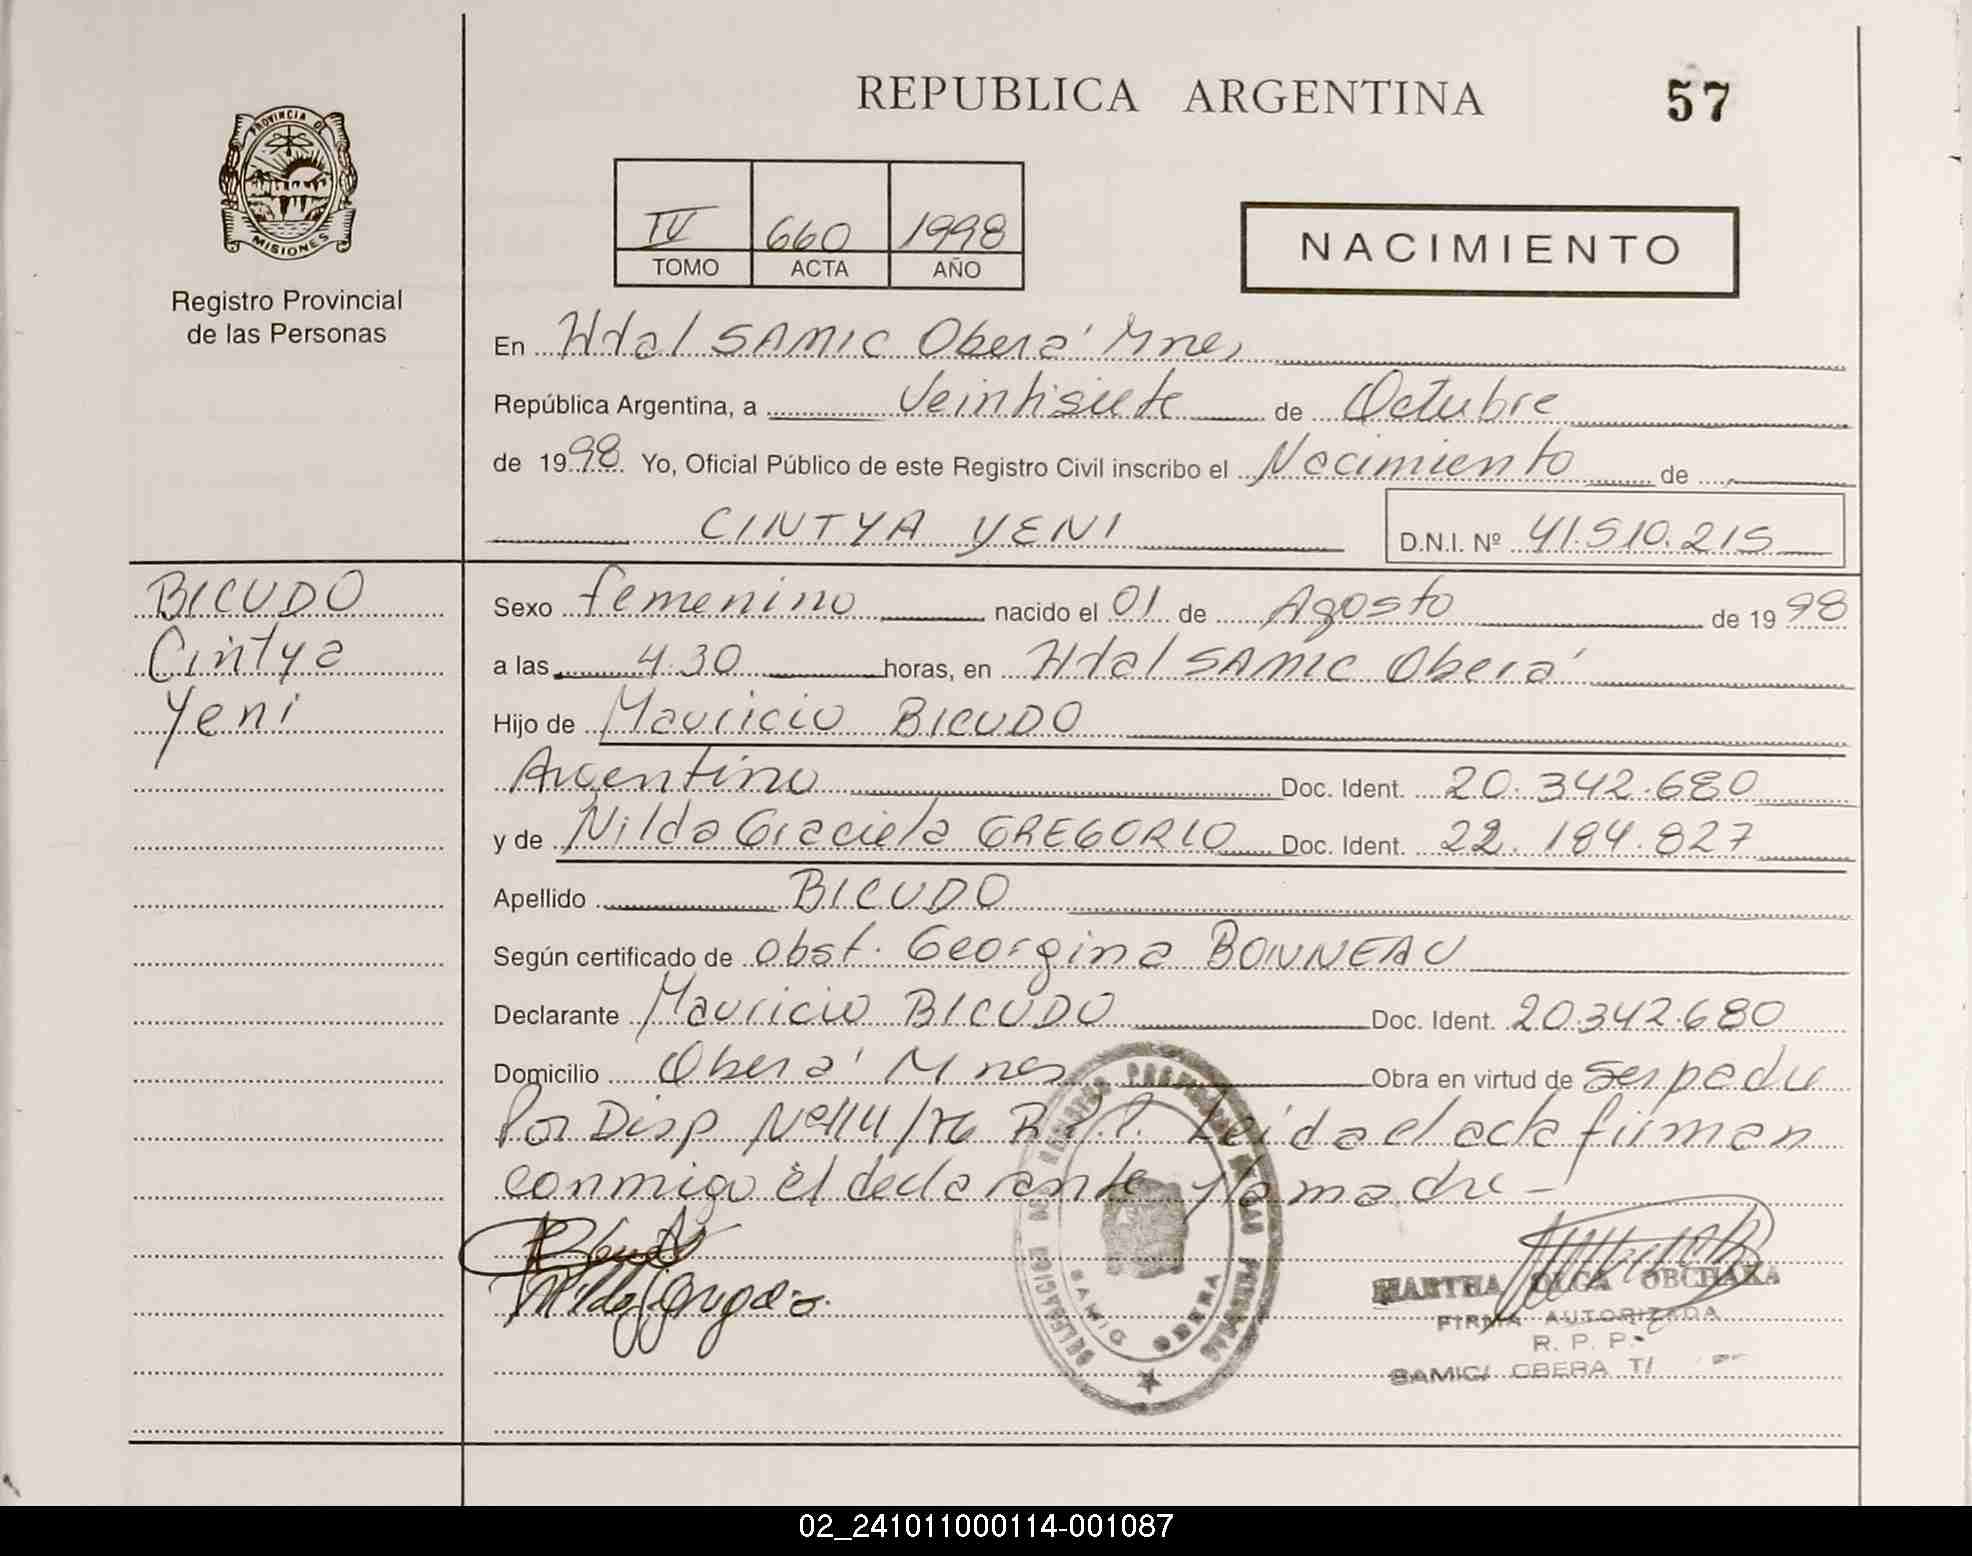 REPUBLICA ARGENTINA
57
PROVINCIA DE
MISIONES
Registro Provincial
de las Personas
IV 660 1998
TOMO ACTA AÑO
NACIMIENTO
En Htal SAMIC Oberá Mnes
República Argentina, a Veintisiete de Octubre
de 1998 Yo, Oficial Público de este Registro Civil inscribo el Nacimiento de
CINTYA YENI
D.N.I. Nº 41.510.215
BICUDO
Cintya
Yeni
Sexo femenino nacido el 01 de Agosto de 1998
a las 4.30 horas, en Htal SAMIC Oberá
Hijo de Mauricio BICUDO
Argentino Doc. Ident. 20.342.680
y de Nilda Graciela GREGORIO Doc. Ident. 22.184.827
Apellido BICUDO
Según certificado de Obst. Georgina BONNEAU
Declarante Mauricio BICUDO Doc. Ident. 20.342.680
Domicilio Oberá Mnes Obra en virtud de ser padre
Por Disp Nº 114/76 R.P.P. Leída el acta firman
conmigo el declarante y la madre -
MARTHA OLGA OBCHAKA
FIRMA AUTORIZADA
R. P. P.
SAMIC/ OBERA T/
DELEGACION
DE LAS PERSONAS
SAMIC OBERA
02_241011000114-001087